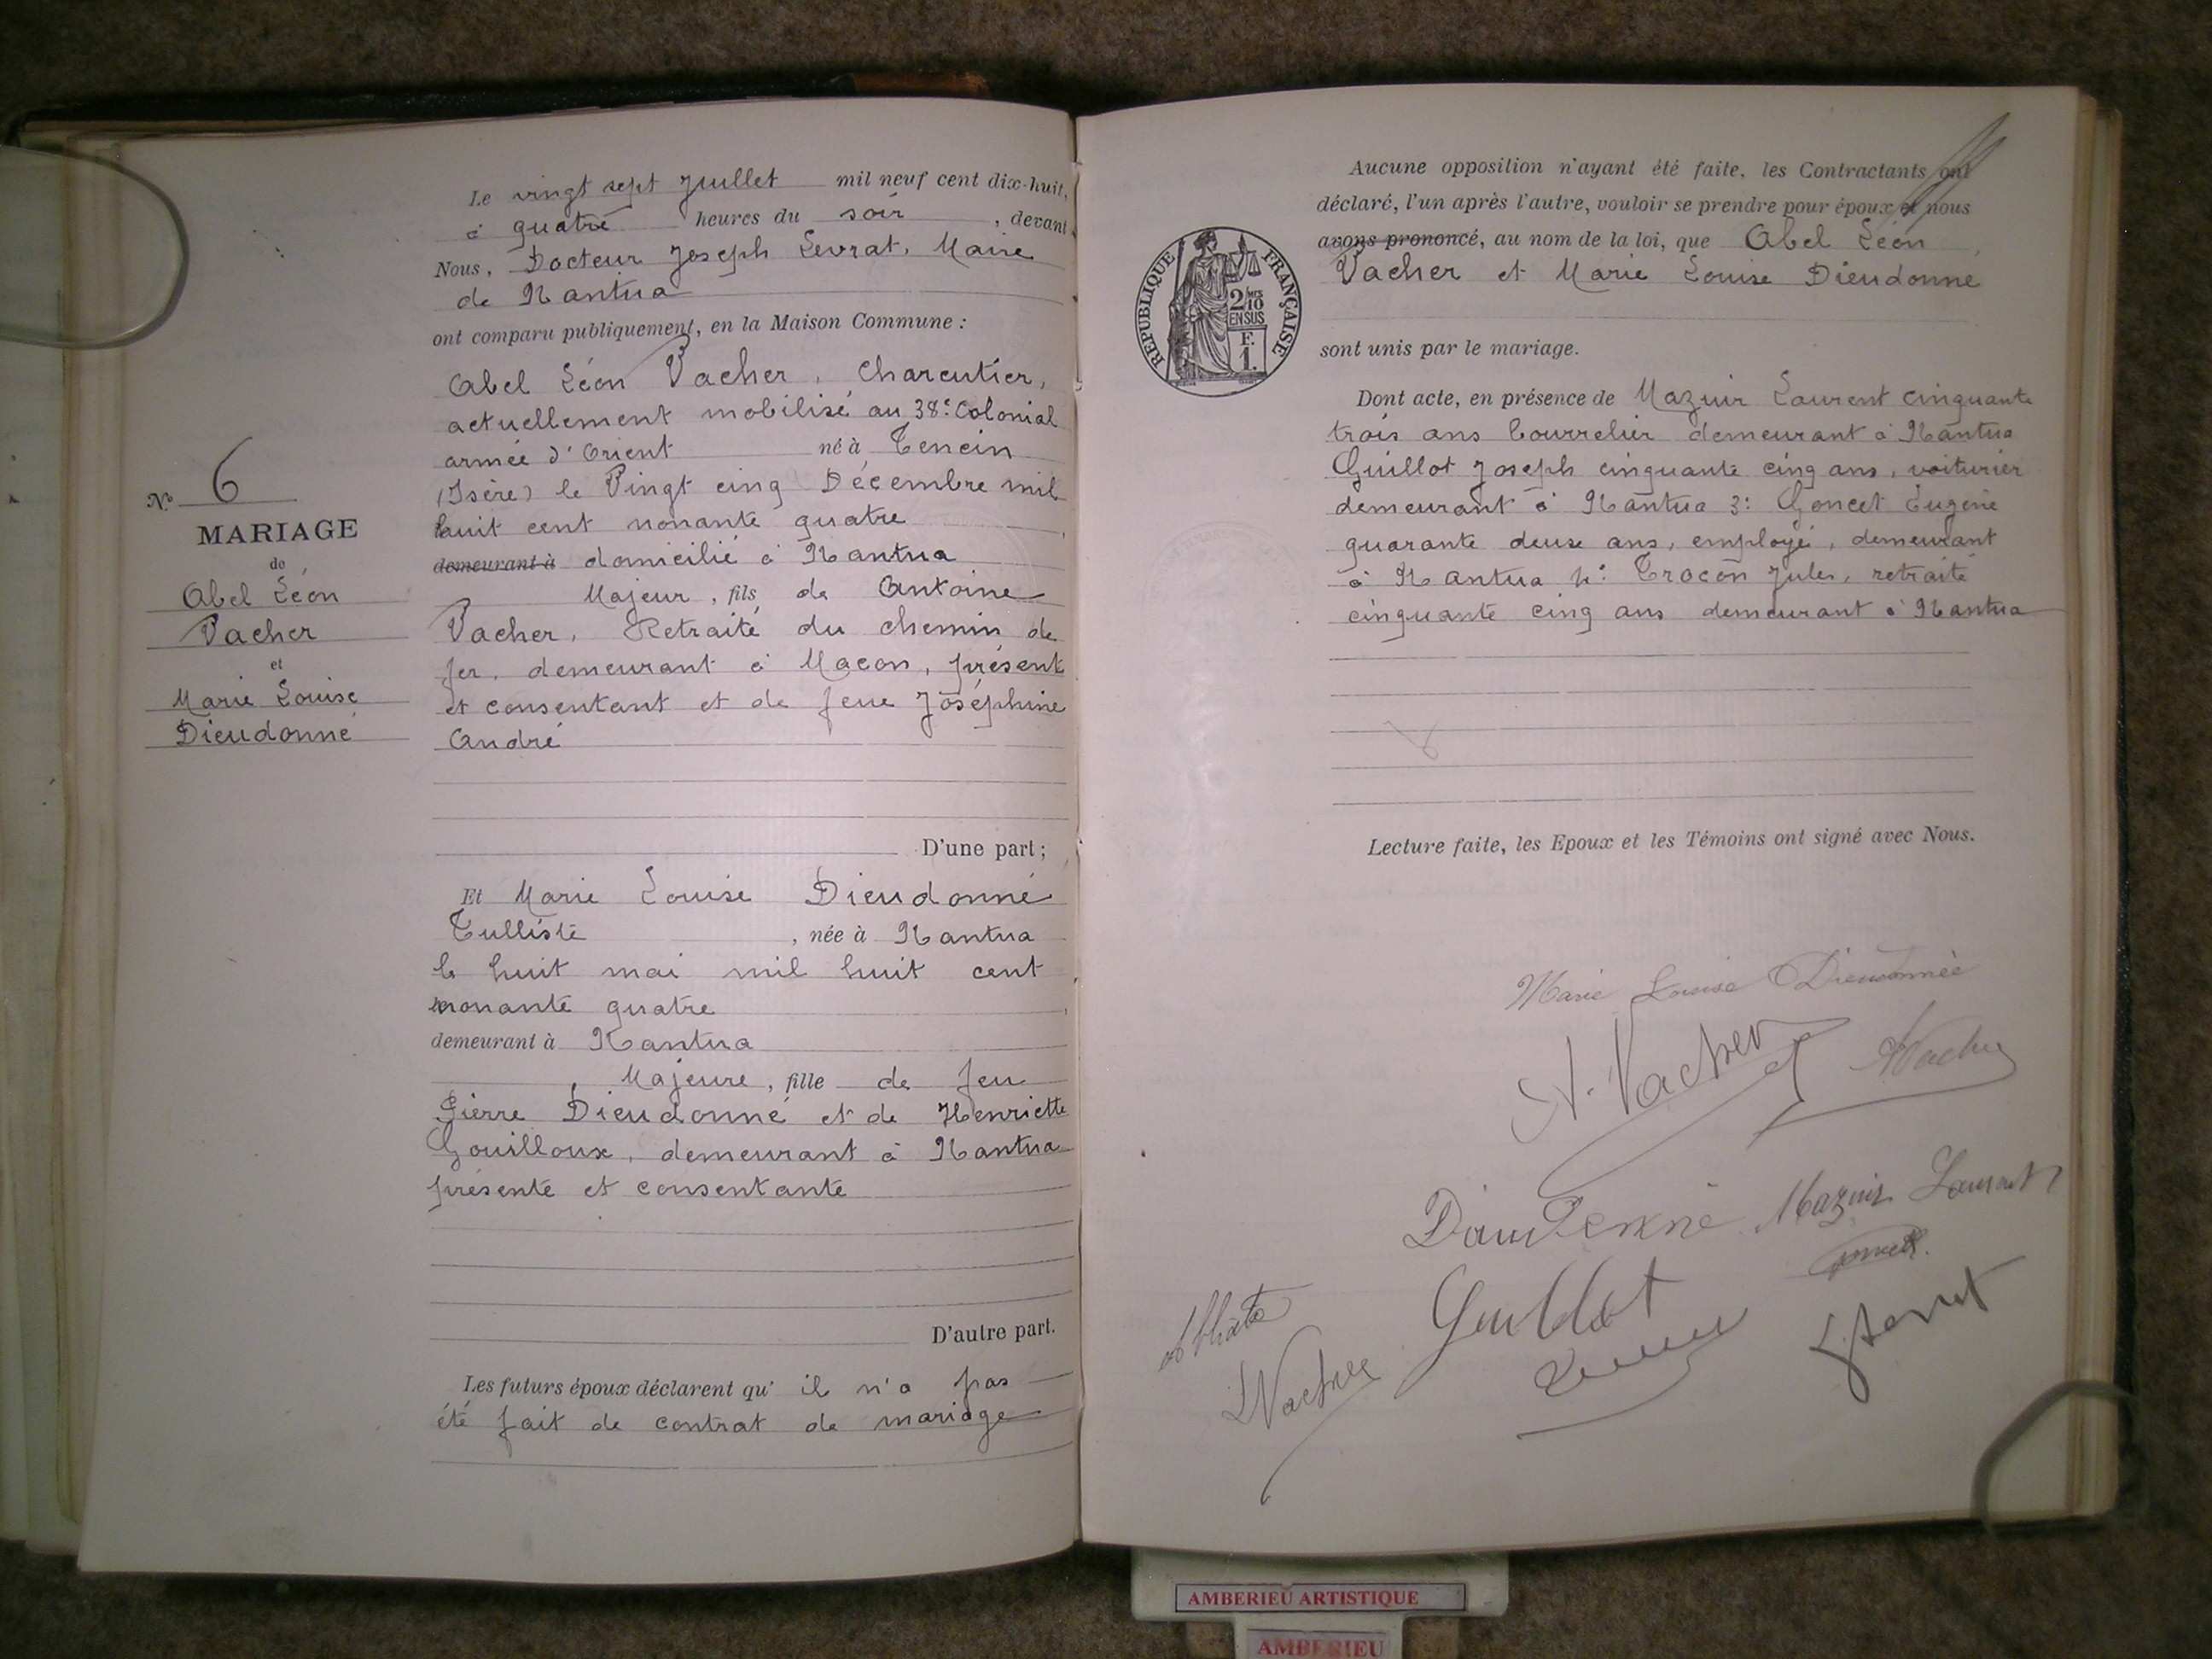 Le vingt sept Juillet mil neuf cent dix-huit,
à quatre heures du soir, devant
Nous, Docteur Joseph Levrat, Maire
de Nantua
ont comparu publiquement, en la Maison Commune :
Abel Léon Vacher, Charcutier,
actuellement mobilisé au 38e Colonial
armée d'Orient né à Tencin
(Isère) le Vingt cinq Décembre mil
huit cent nonante quatre
demeurant à domicilié à Nantua
Majeur, fils de Antoine
Vacher, Retraité du chemin de
fer, demeurant à Macon, présent
et consentant et de feue Joséphine
André
D'une part ;
Et Marie Louise Dieudonné
Tulliste, née à Nantua
le huit mai mil huit cent
nonante quatre
demeurant à Nantua
, Majeure, fille de feu
Pierre Dieudonné et de Henriette
Gouilloux, demeurant à Nantua
présente et consentante
D'autre part.
Les futurs époux déclarent qu' il n'a pas
été fait de contrat de mariage
No 6
MARIAGE
de
Abel Léon
Vacher
et
Marie Louise
Dieudonné
Aucune opposition n'ayant été faite, les Contractants ont
déclaré, l'un après l'autre, vouloir se prendre pour époux et nous
avons prononcé, au nom de la loi, que Abel Léon
Vacher et Marie Louise Dieudonné
sont unis par le mariage.
Dont acte, en présence de Mazuir Laurent cinquante
trois ans bourrelier demeurant à Nantua
Guillot Joseph cinquante cinq ans, voiturier
demeurant à Nantua 3: Goncet Eugène
quarante deux ans, employé, demeurant
à Nantua 4: Trocon Jules, retraité
cinquante cinq ans demeurant à Nantua
Lecture faite, les Epoux et les Témoins ont signé avec Nous.
REPUBLIQUE FRANÇAISE
2/MES 10
EN SUS
F.
1.
Marie Louise Dieudonnée
A. Vacher
AVacher
Mazuir Laurent
Guillot
LVacher
AMBERIEU ARTISTIQUE
AMBERIEU